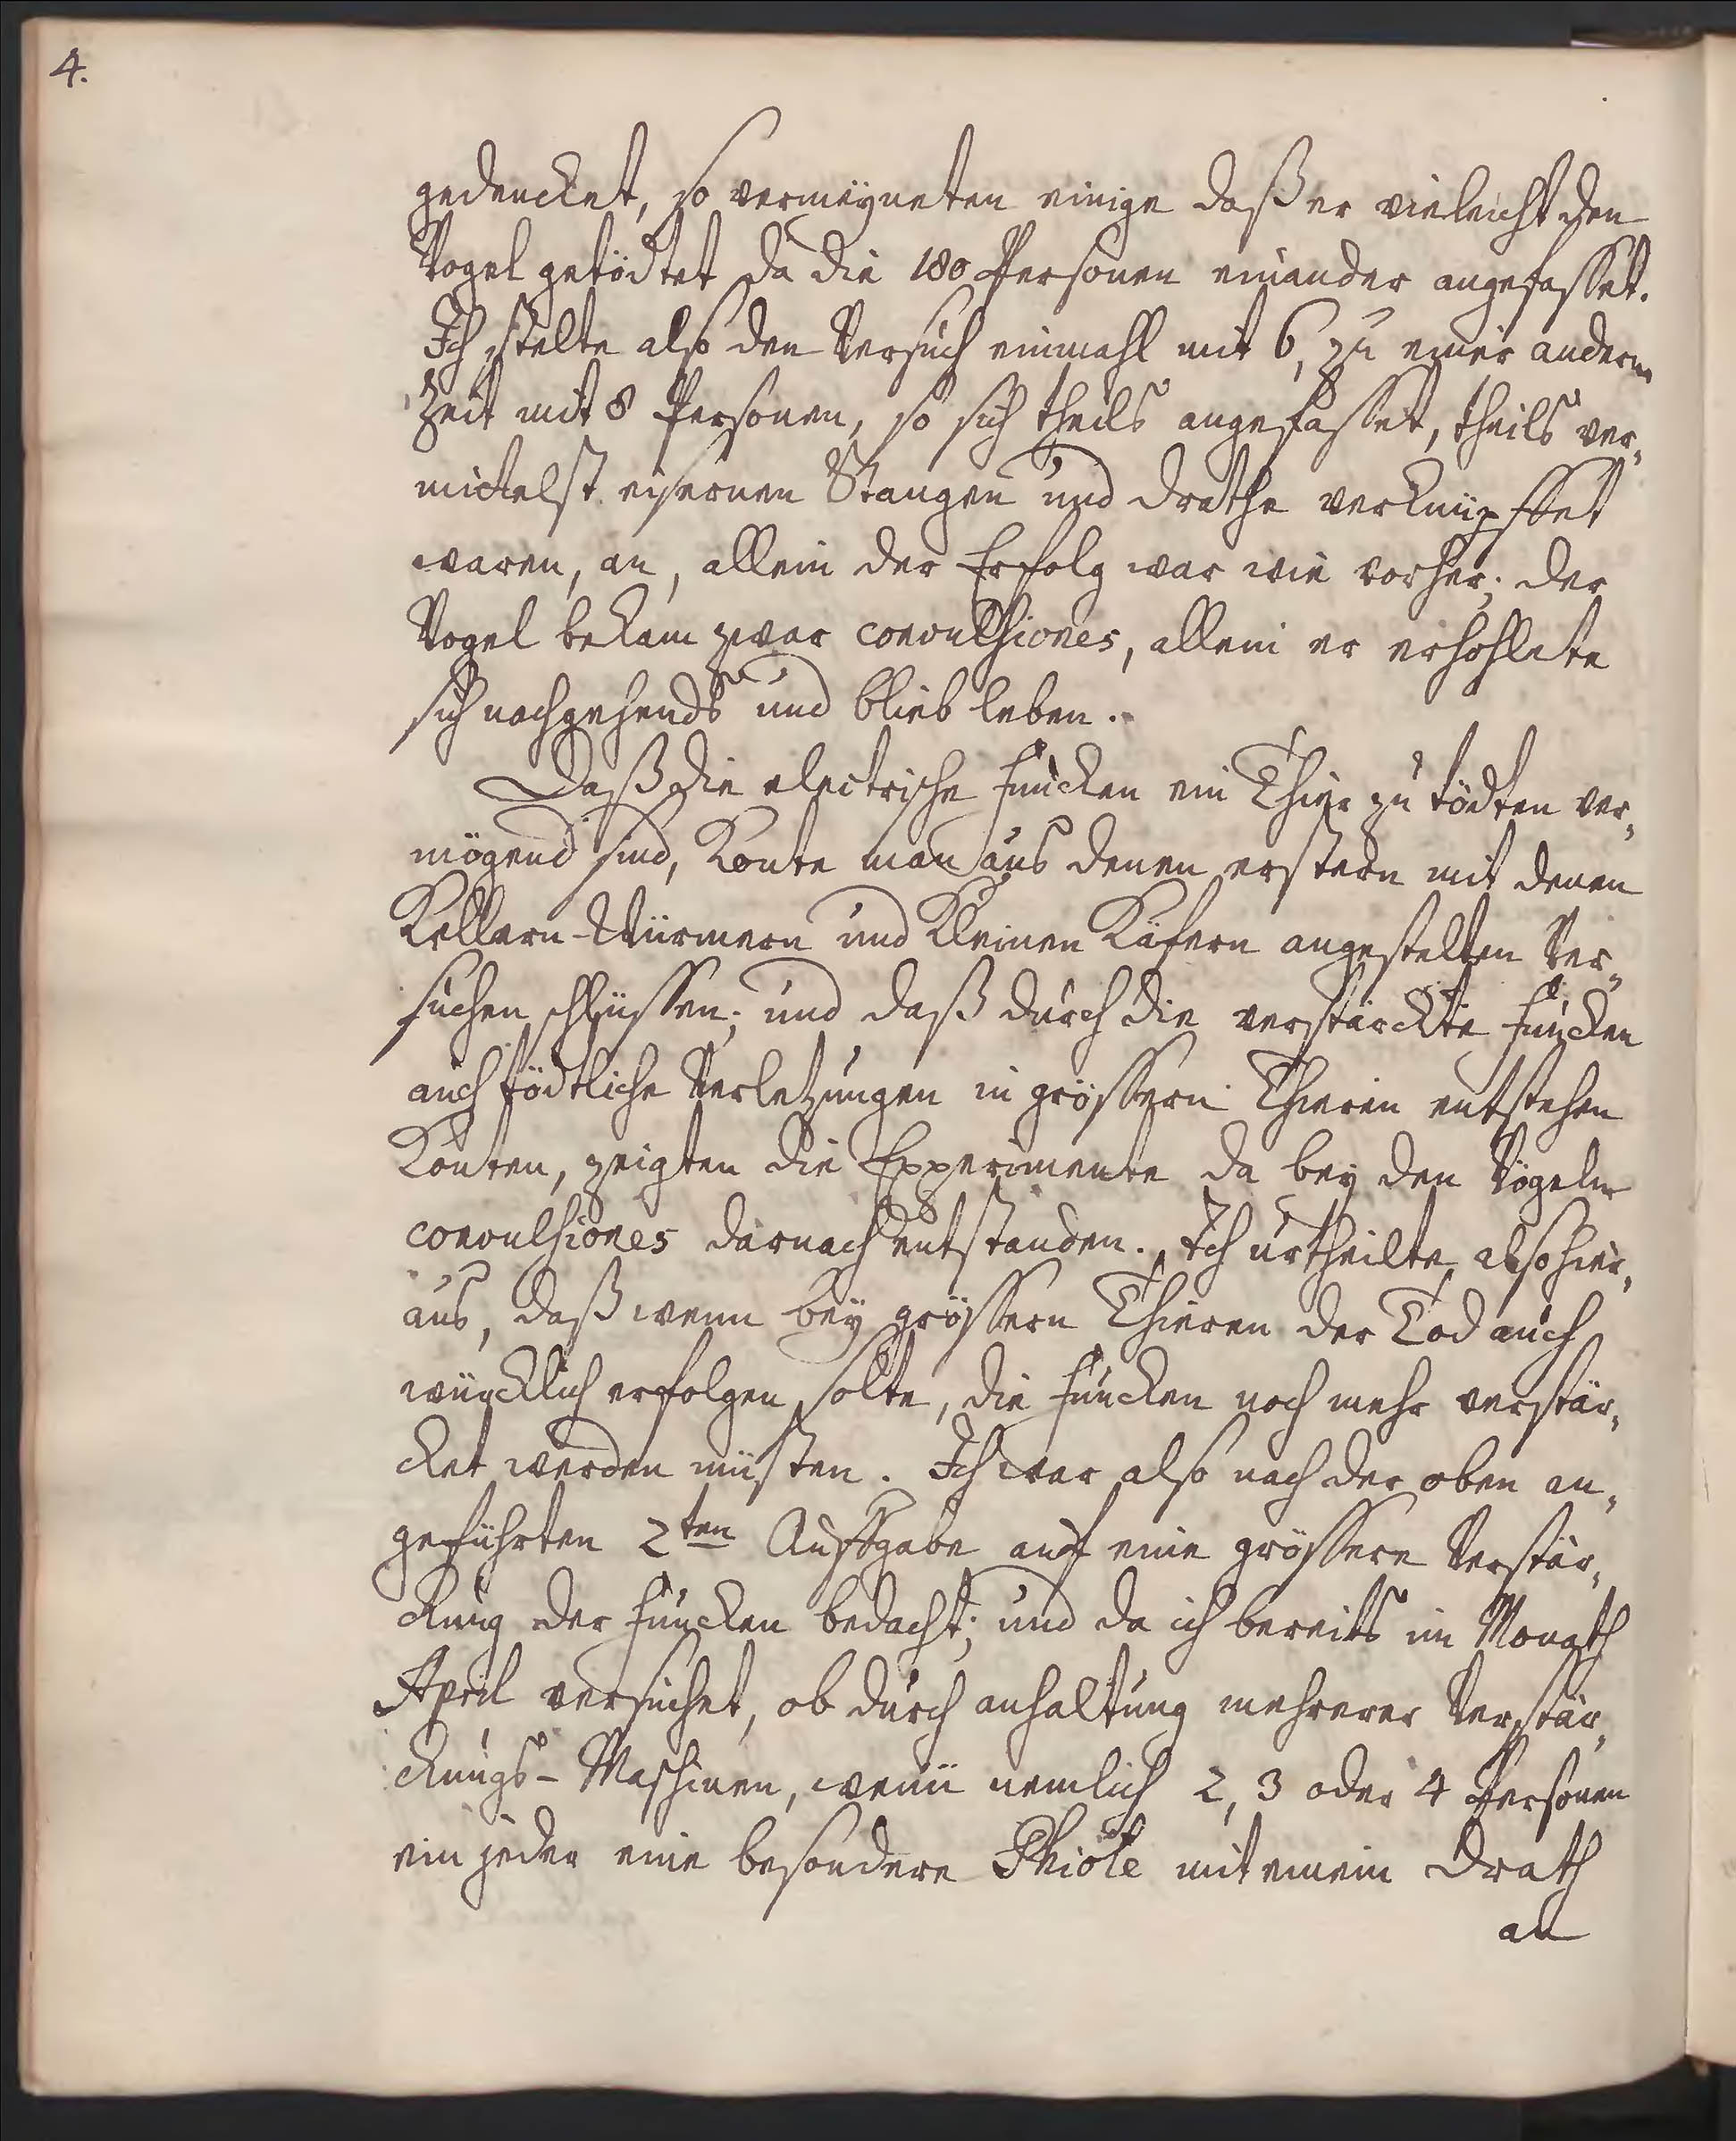 4.
gedencket, so vermeyneten einige daß er vieleicht den
Vogel getödtet da die 180 Personen einander angefasset.
Ich stelte also den Versuch einmahl mit 6, zu einer andern
Zeit mit 8 Personen, so sich theils angefasset, theils ver„
mittelst eisernen Stangen und Drathe verknüpffet
waren, an, allein der Erfolg war wie vorher; der
Vogel bekam zwar convulsiones, allein er erhohlete
sich nachgehends und blieb leben.
Daß die electrische Funcken ein Thier zu tödten ver„
mögend sind, konte man aus denen erstern mit denen
Kellern-Würmern und kleinen Käfern angestelten Ver„
suchen schlüssen; und daß durch die verstärckte Funcken
auch tödtliche Verletzungen in grössern Thieren entstehen
könten, zeigten die Experimente da bey den Vögeln
convulsiones darnach entstanden. Ich urtheilte also hier„
aus, daß wenn bey grössern Thieren der Tod auch
würcklich erfolgen solte, die Funcken noch mehr verstär„
cket werden müsten. Ich war also nach der oben an„
geführten 2ten Auffgabe auf eine grössere Verstär„
ckung der Funcken bedacht; und da ich bereits im Monath
April versuchet, ob durch anhaltung mehrerer Verstär„
ckungs-Maschinen, wenn nemlich 2, 3 oder 4 Personen
ein jeder eine besondere Phiole mit einem Drath
an